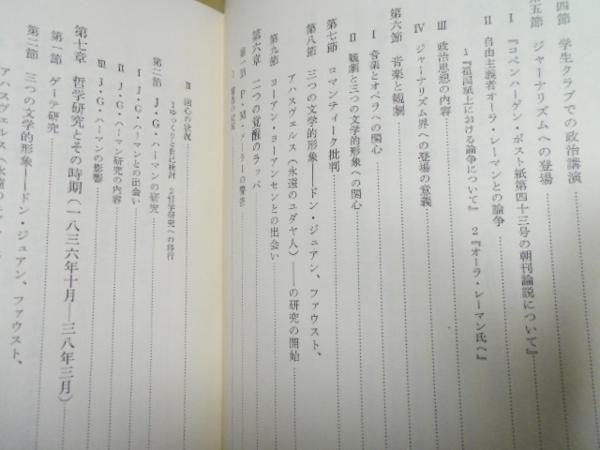 四節 学生クラブでの政治講演
五節 ジャーナリズムへの登場
Ⅰ 『コペンハーゲン・ポスト紙第四十三号の朝刊論説について』
Ⅱ 自由主義者オーラ・レーマンとの論争
1『祖国紙上における論争について』 2『オーラ・レーマン氏へ』
Ⅲ 政治思想の内容
Ⅳ ジャーナリズム界への登場の意義
第六節 音楽と観劇
Ⅰ 音楽とオペラへの関心
Ⅱ 観劇と三つの文学的形象への関心
第七節 ロマンティーク批判
第八節 三つの文学的形象――ドン・ジュアン、ファウスト、
アハスヴェルス(永遠のユダヤ人)――の研究の開始
第九節 ヨーアン・ヨーアンセンとの出会い
第六章 二つの覚醒のラッパ
第一節 P・M・
Ⅱ 回心の状況
第二節 J・G・ハーマンの研究
Ⅰ J・G・ハーマンとの出会い
Ⅱ J・G・ハーマン研究の内容
Ⅲ J・G・ハーマンの影響
第七章 哲学研究とその時期(一八三六年十月――三八年三月)
第一節 ゲーテ研究
第二節 三つの文学的形象――ドン・ジュアン、ファウスト、
アハスヴェルス(永遠の